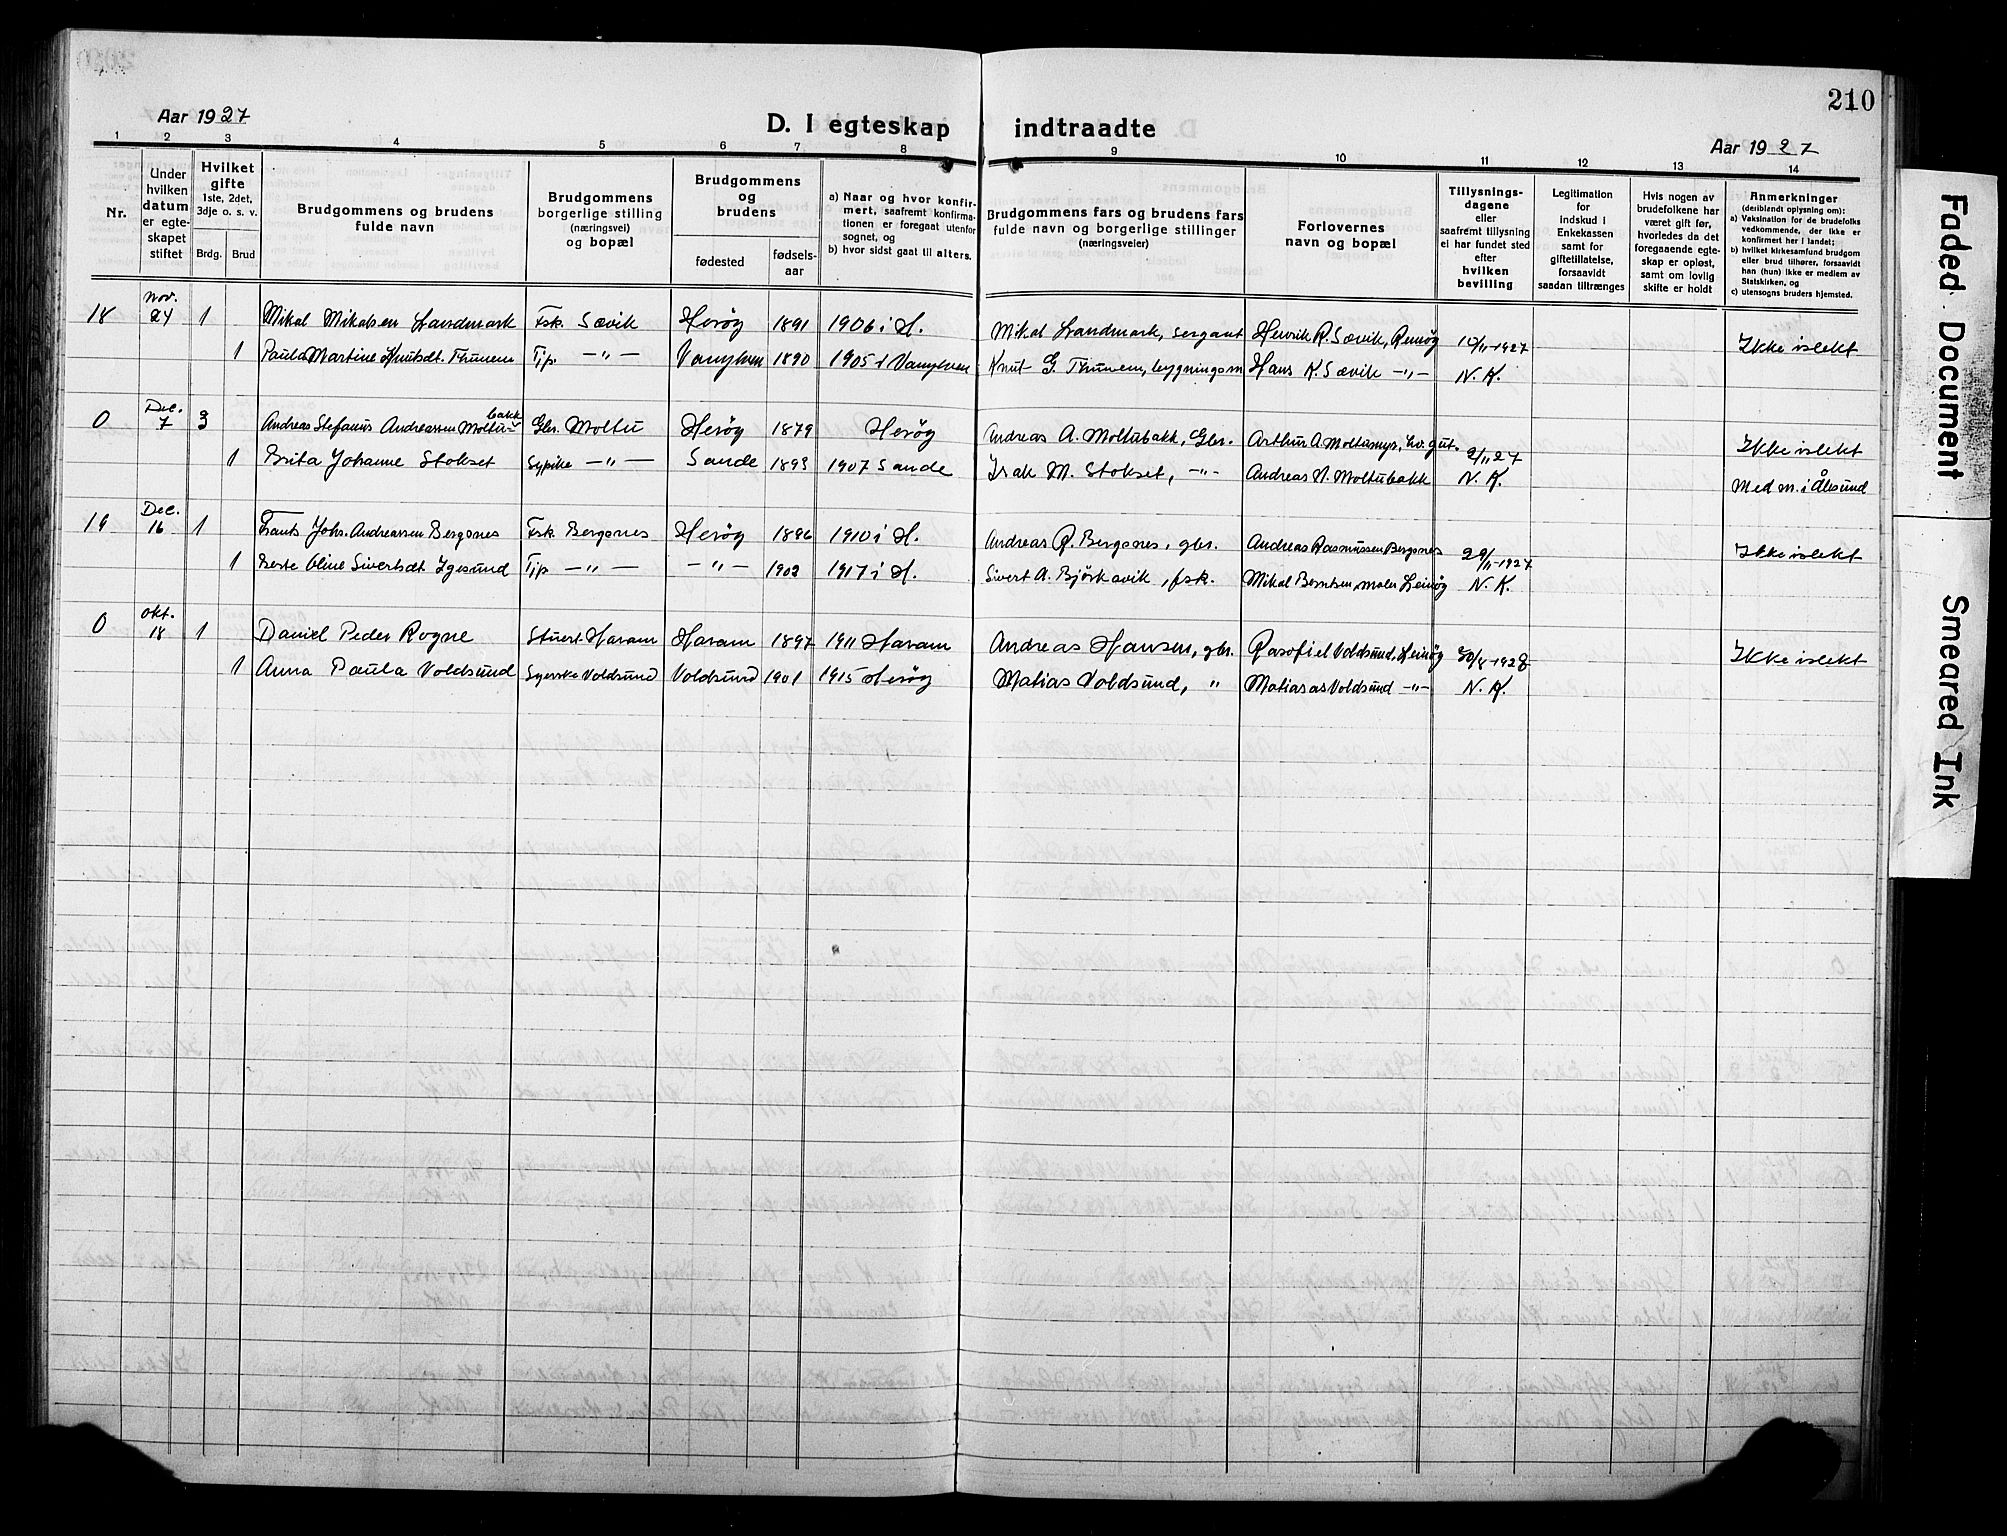 210
Aar 1927
D. I egteskap indtraadte
Aar 1927
1 2 3 4 5 6 7 8 9 10 11 12 13 14
Nr.
Under hvilken datum er egteskapet stiftet
Hvilket gifte 1ste, 2det, 3dje o. s. v.
Brdg. Brud
Brudgommens og brudens fulde navn
Brudgommens borgerlige stilling (næringsvei) og bopæl
Brudgommens og brudens
fødested
fødselsaar
a) Naar og hvor konfirmert, saafremt konfirmationen er foregaat utenfor sognet, og
b) hvor sidst gaat til alters.
Brudgommens fars og brudens fars fulde navn og borgerlige stillinger (næringsveier)
Forlovernes navn og bopæl
Tillysningsdagene eller saafremt tillysning ei har fundet sted efter hvilken bevilling
Legitimation for indskud i Enkekassen samt for giftetillatelse, forsaavidt saadan tiltrænges
Hvis nogen av brudefolkene har været gift før, hvorledes da det foregaaende egteskap er opløst, samt om lovlig skifte er holdt
Anmerkninger (deriblandt oplysning om):
a) Vaksination for de brudefolks vedkommende, der ikke er konfirmert her i landet;
b) hvilket kirkesamfund brudgom eller brud tilhører, forsaavidt han (hun) ikke er medlem av Statskirken, og
c) utensogns bruders hjemsted.
18 Nov. 24 1 Mikal Mikalsen Landmark Fsk. Sævik Herøy 1891 1906 i H. Mikal Landmark, sergant Henrik R. Sævik, Remøy 10/11-1927 Ikke i slekt
1 Paula Martine Knutsdt. Thunem Tjp. —"— Vanylven 1890 1905 i Vanylven Knut G. Thunem, bygningsm Hans K. Sævik —"— N. K.
0 Dec. 7 3 Andreas Stefanus Andreassen Moltubakk Gbr. Moltu Herøy 1879 Herøy Andreas A. Moltubakk, Gbr. Arthur A. Moltumyr, lv. gut. 2/11 27 Ikke i slekt
1 Brita Johanne Stokset Sypike —"— Sande 1893 1907 Sande Isak M. Stokset, —"— Andreas N. Moltubakk N. K. Med m. i Ålesund
19 Dec. 16 1 Frants Johs. Andreassen Bergsnes Fsk. Bergsnes Herøy 1896 1910 i H. Andreas R. Bergsnes, gbr. Andreas Rasmussen Bergsnes 29/11-1927 Ikke i slekt
1 Oline Sivertsdt. Igesund Tjp —"— —"— 1902 1917 i H. Sivert A. Bjørkavik, fsk. Mikal Berntsen, maler Leinøy N. K.
0 Okt. 18 1 Daniel Peder Rogne Stuert Haram Haram 1897 1911 Haram Andreas Hansen, gbr. Rasofiel Voldsund, Leinøy 1928 Ikke i slekt
1 Anna Paula Voldsund Syerske Voldsund Voldsund 1901 1915 Herøy Matias Voldsund, " Matias as Voldsund —"— N. K.
Faded Document
Smeared Ink